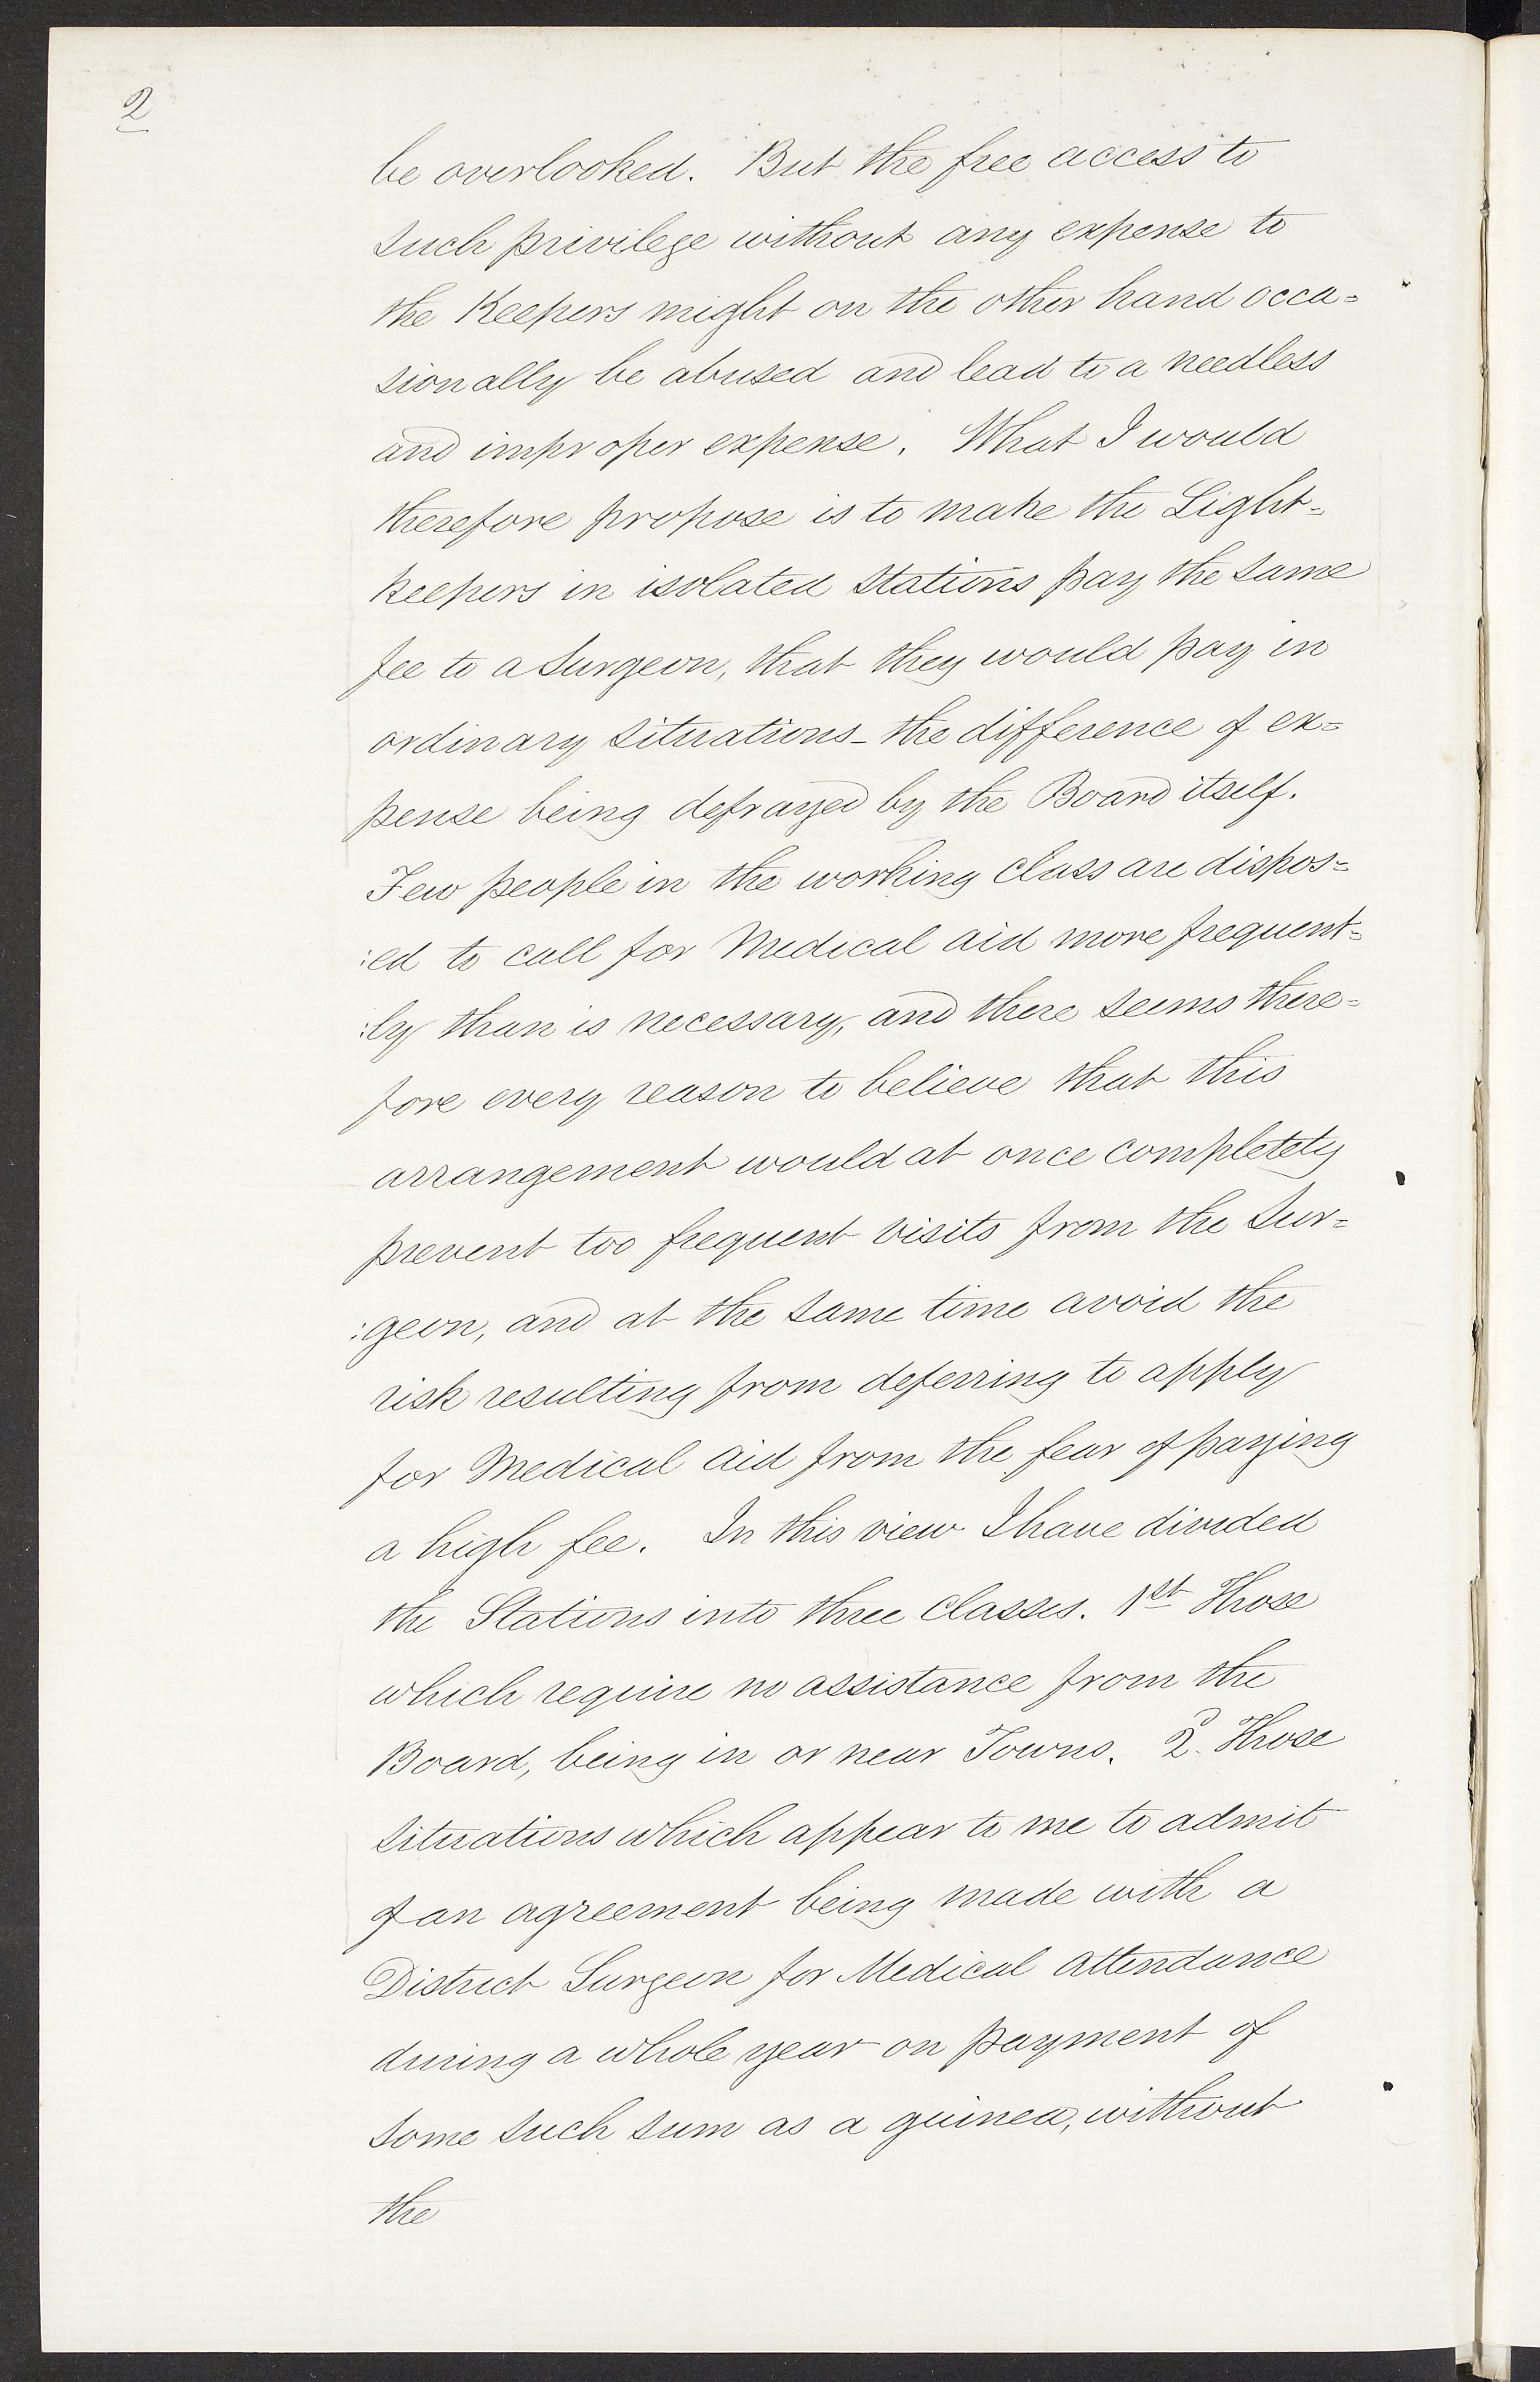 2
be overlooked. But the free access to
such privilege without any expense to
the Keepers might on the other hand occa=
sionally be abused and lead to a needless
and improper expense. What I would
therefore propose is to make the Light=
keepers in isolated stations pay the same
fee to a Surgeon, that they would pay in
ordinary situations_ the difference of ex=
pense being defrayed by the Board itself.
Few people in the working class are dispos=
:ed to call for Medical aid more frequent=
:ly than is necessary, and there seems there=
fore every reason to believe that this
arrangement would at once completely
prevent too frequent visits from the Sur=
:geon, and at the same time avoid the
risk resulting from deferring to apply
for Medical aid from the fear of paying
a high fee. In this view I have divided
the Stations into three classes. 1st Those
which require no assistance from the
Board, being in or near Towns. 2d. Those
situations which appear to me to admit
of an agreement being made with a
District Surgeon for Medical attendance
during a whole year on payment of
some such sum as a guinea, without
the